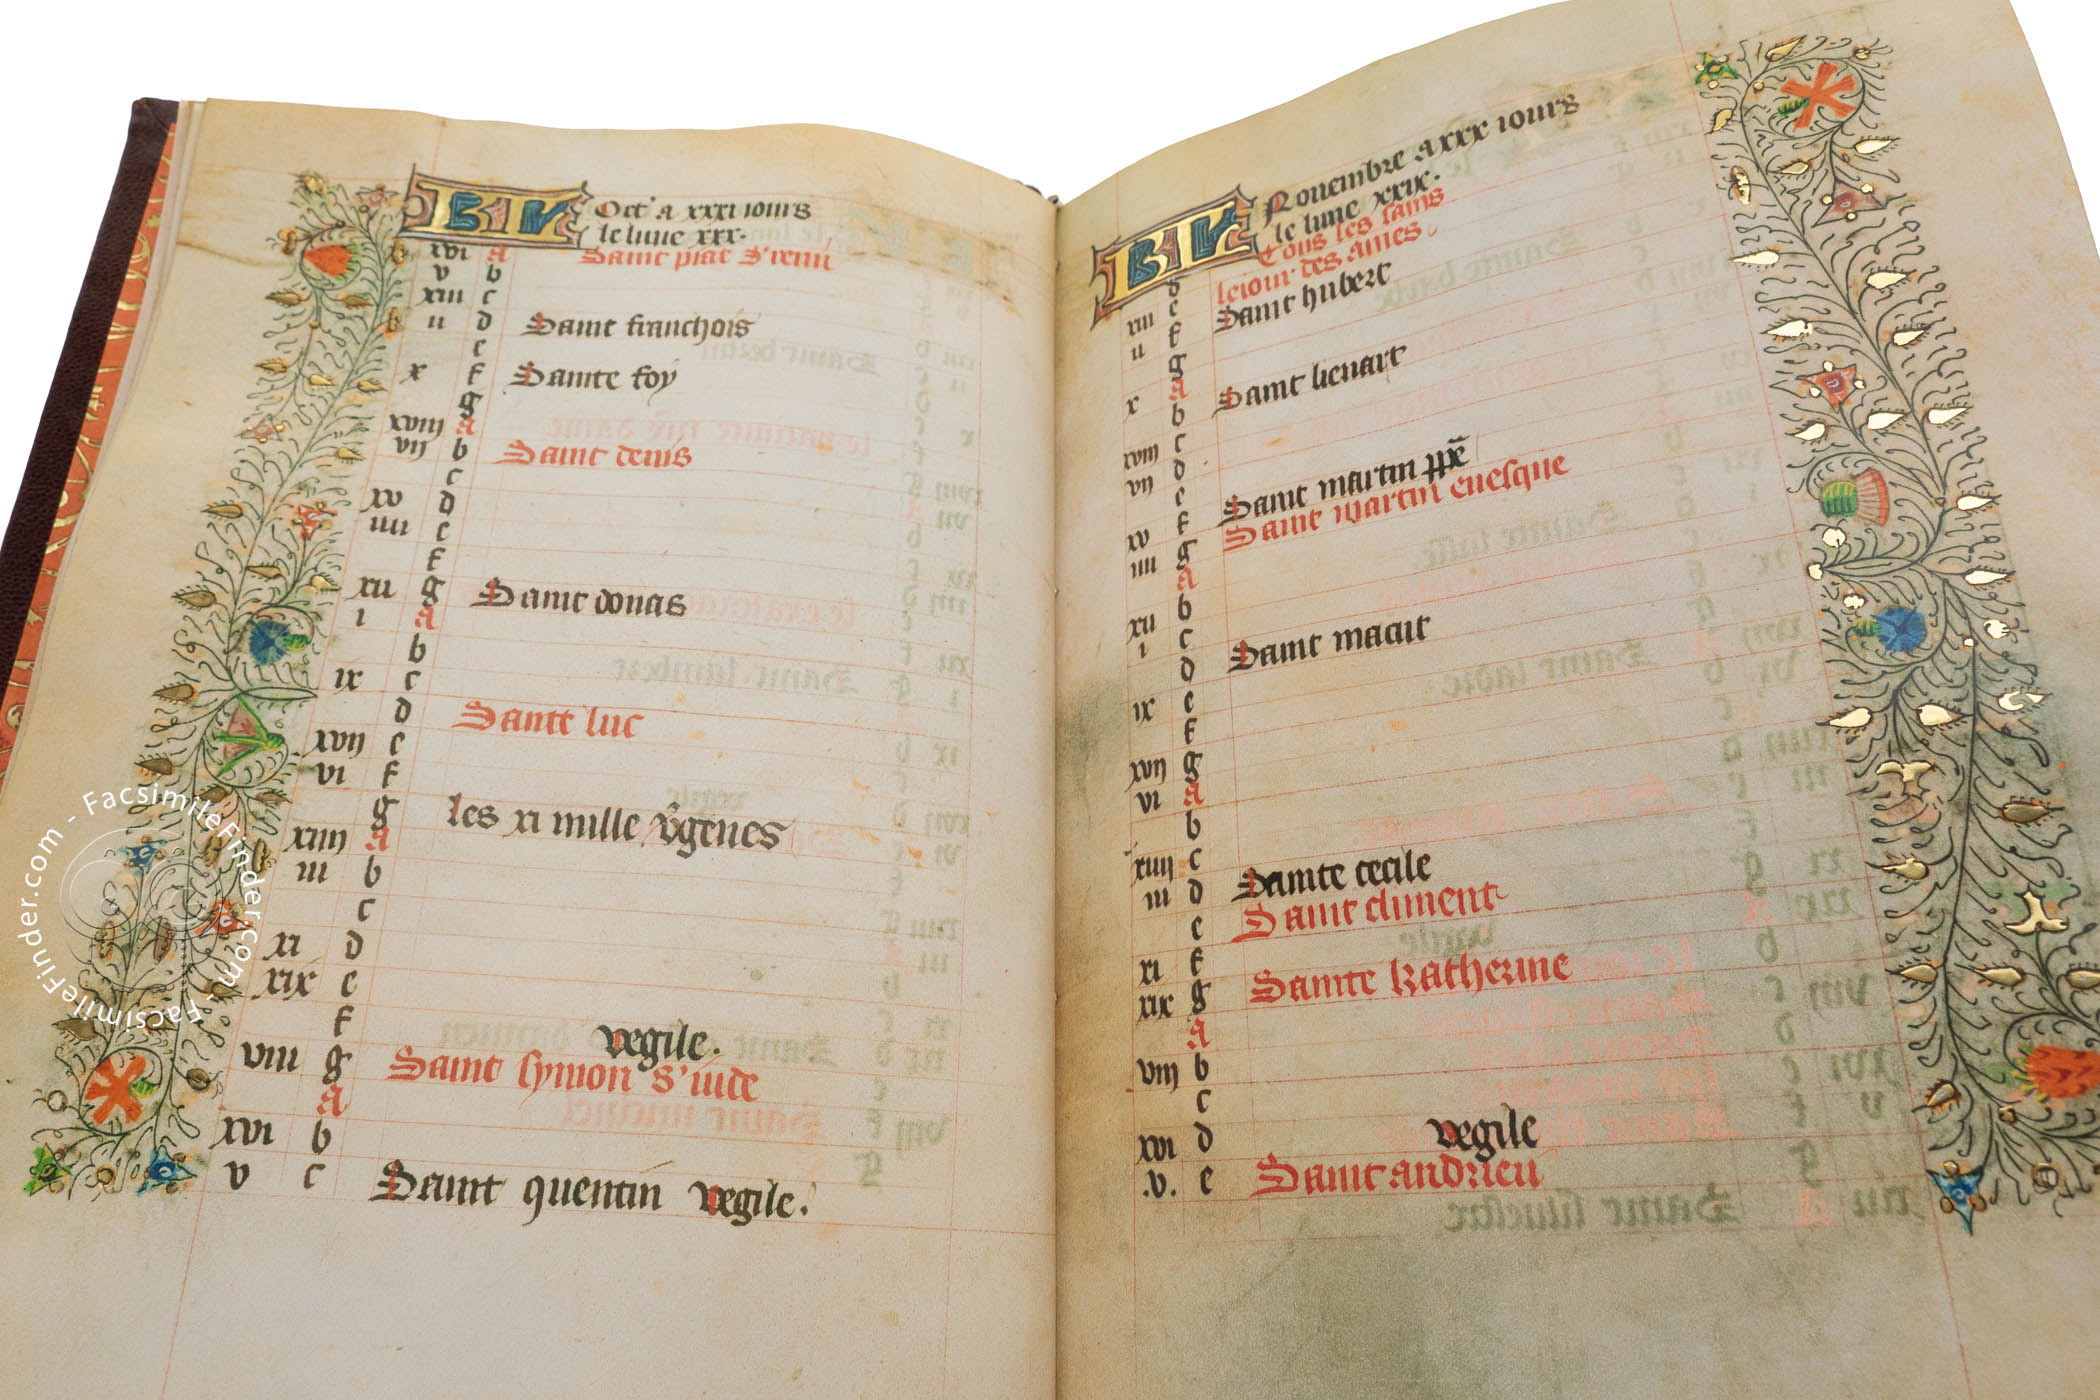 KL Oct' a xxxi iours
le lune xxx.
xvi A Saint piat S' remi
v b
xiii c
ii d Saint franchois
e
x f Sainte foy
g
xviii A
vii b Saint denis
c
xv d
iiii e
f
xii g Saint donas
i A
b
ix c
d Saint luc
xvii e
vi f
g les xi mille v̄genes
xiiii A
iii b
c
xi d
xix e
f vegile.
viii g Saint symon S' iude
A
xvi b
v c Saint quentin vegile.
KL Nouembre a xxx iours
le lune xxix.
d Tous les sains
xiii e le iour des ames.
ii f Saint hubert
g
x A Saint lienart
b
xviii c
vii d
e Saint martin pp̄e
xv f Saint martin euesque
iiii g
A
xii b
i c Saint maciit
d
ix e
f
xvii g
vi A
b
xiiii c Sainte cecile
iii d Saint climent
e
xi f Sainte katherine
xix g
A
viii b
c
xvi d vegile
.v. e Saint andrieu
FacsimileFinder.com - FacsimileFinder.com - FacsimileFinder.com